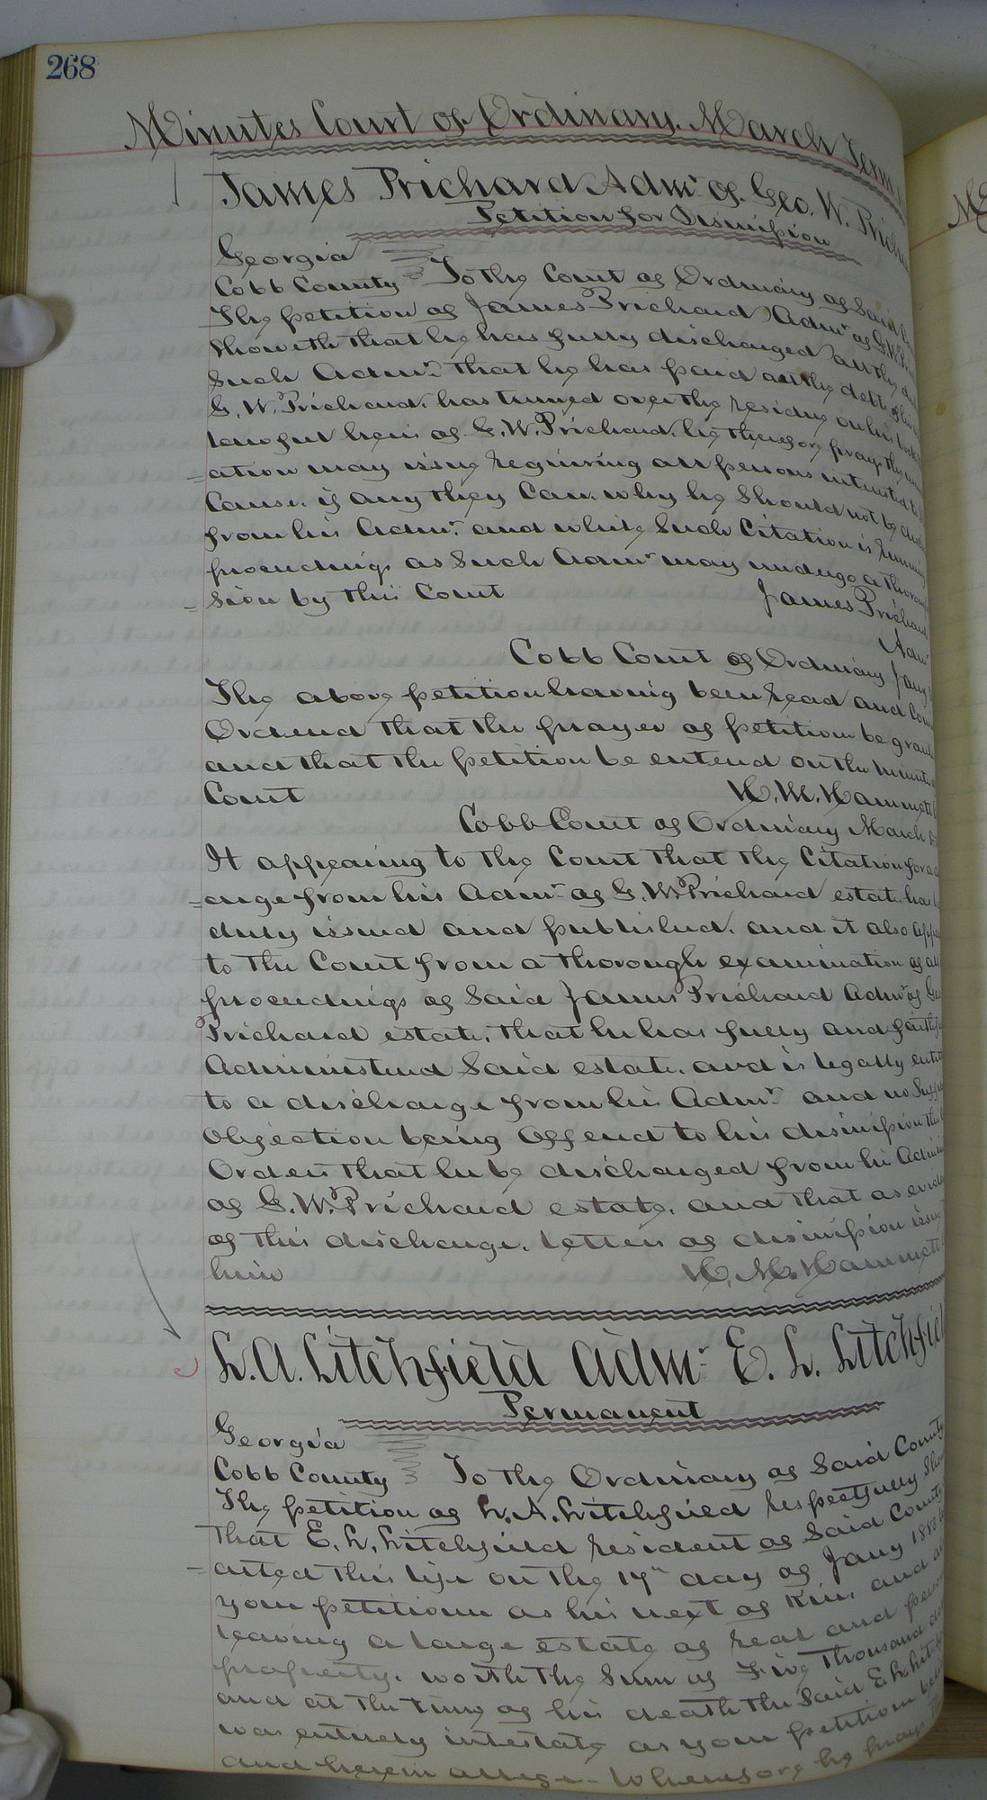 268
Minutes Court of Ordinary, March Term
James Prichard Admr. of. Geo. W. Prich
Petition for Dismission
Georgia
Cobb County To the Court of Ordinary of Said
The petition of James Prichard Admr. of G. W.
Showeth that he has fully discharged all the
Such Admr. that he has paid all the debts
G. W. Prichard, has turned over the residue
lawful heirs of G. W. Prichard. he therefore prays
=ation may issue requiring all persons interested
Cause, if any they Can, why he Should not be
from his Admr. and while Such Citation is running
proceedings as Such Admr. may undergo a
=sion by this Court James Prichard
Admr
Cobb Court of Ordinary Jany
The above petition having been read and
Ordered that the prayer of petition be
and that the petition be entered on the minutes
Court H. M. Hammett
Cobb Court of Ordinary March
It appearing to the Court that the Citation for
=arge from his Admr. of G. W. Prichard estate has
duly issued and published, and it also
to the Court from a thorough examination of
proceedings of Said James Prichard Admr of
Prichard estate, that he has fully and
Administered Said estate, and is legally
to a discharge from his Admr. and no
Objection being Offered to his dismission
Orders that he be discharged from his
of G. W. Prichard estate, and that as
of this discharge, letters of dismission issue
him H. M. Hammett
L. A. Litchfield Admr. E. L. Litchfield
Permanent
Georgia
Cobb County To the Ordinary of Said County
The petition of L. A. Litchfield Respectfully
that E. L. Litchfield resident of Said County
=arted this life on the 19th day of Jany
your petitioner as his next of Kin, and
leaving a large estate of real and
property, worth the Sum of Five Thousand
and at the time of his death the Said E. L.
was entirely intestate as your petitioner
and herein alleges. Wherefore he prays